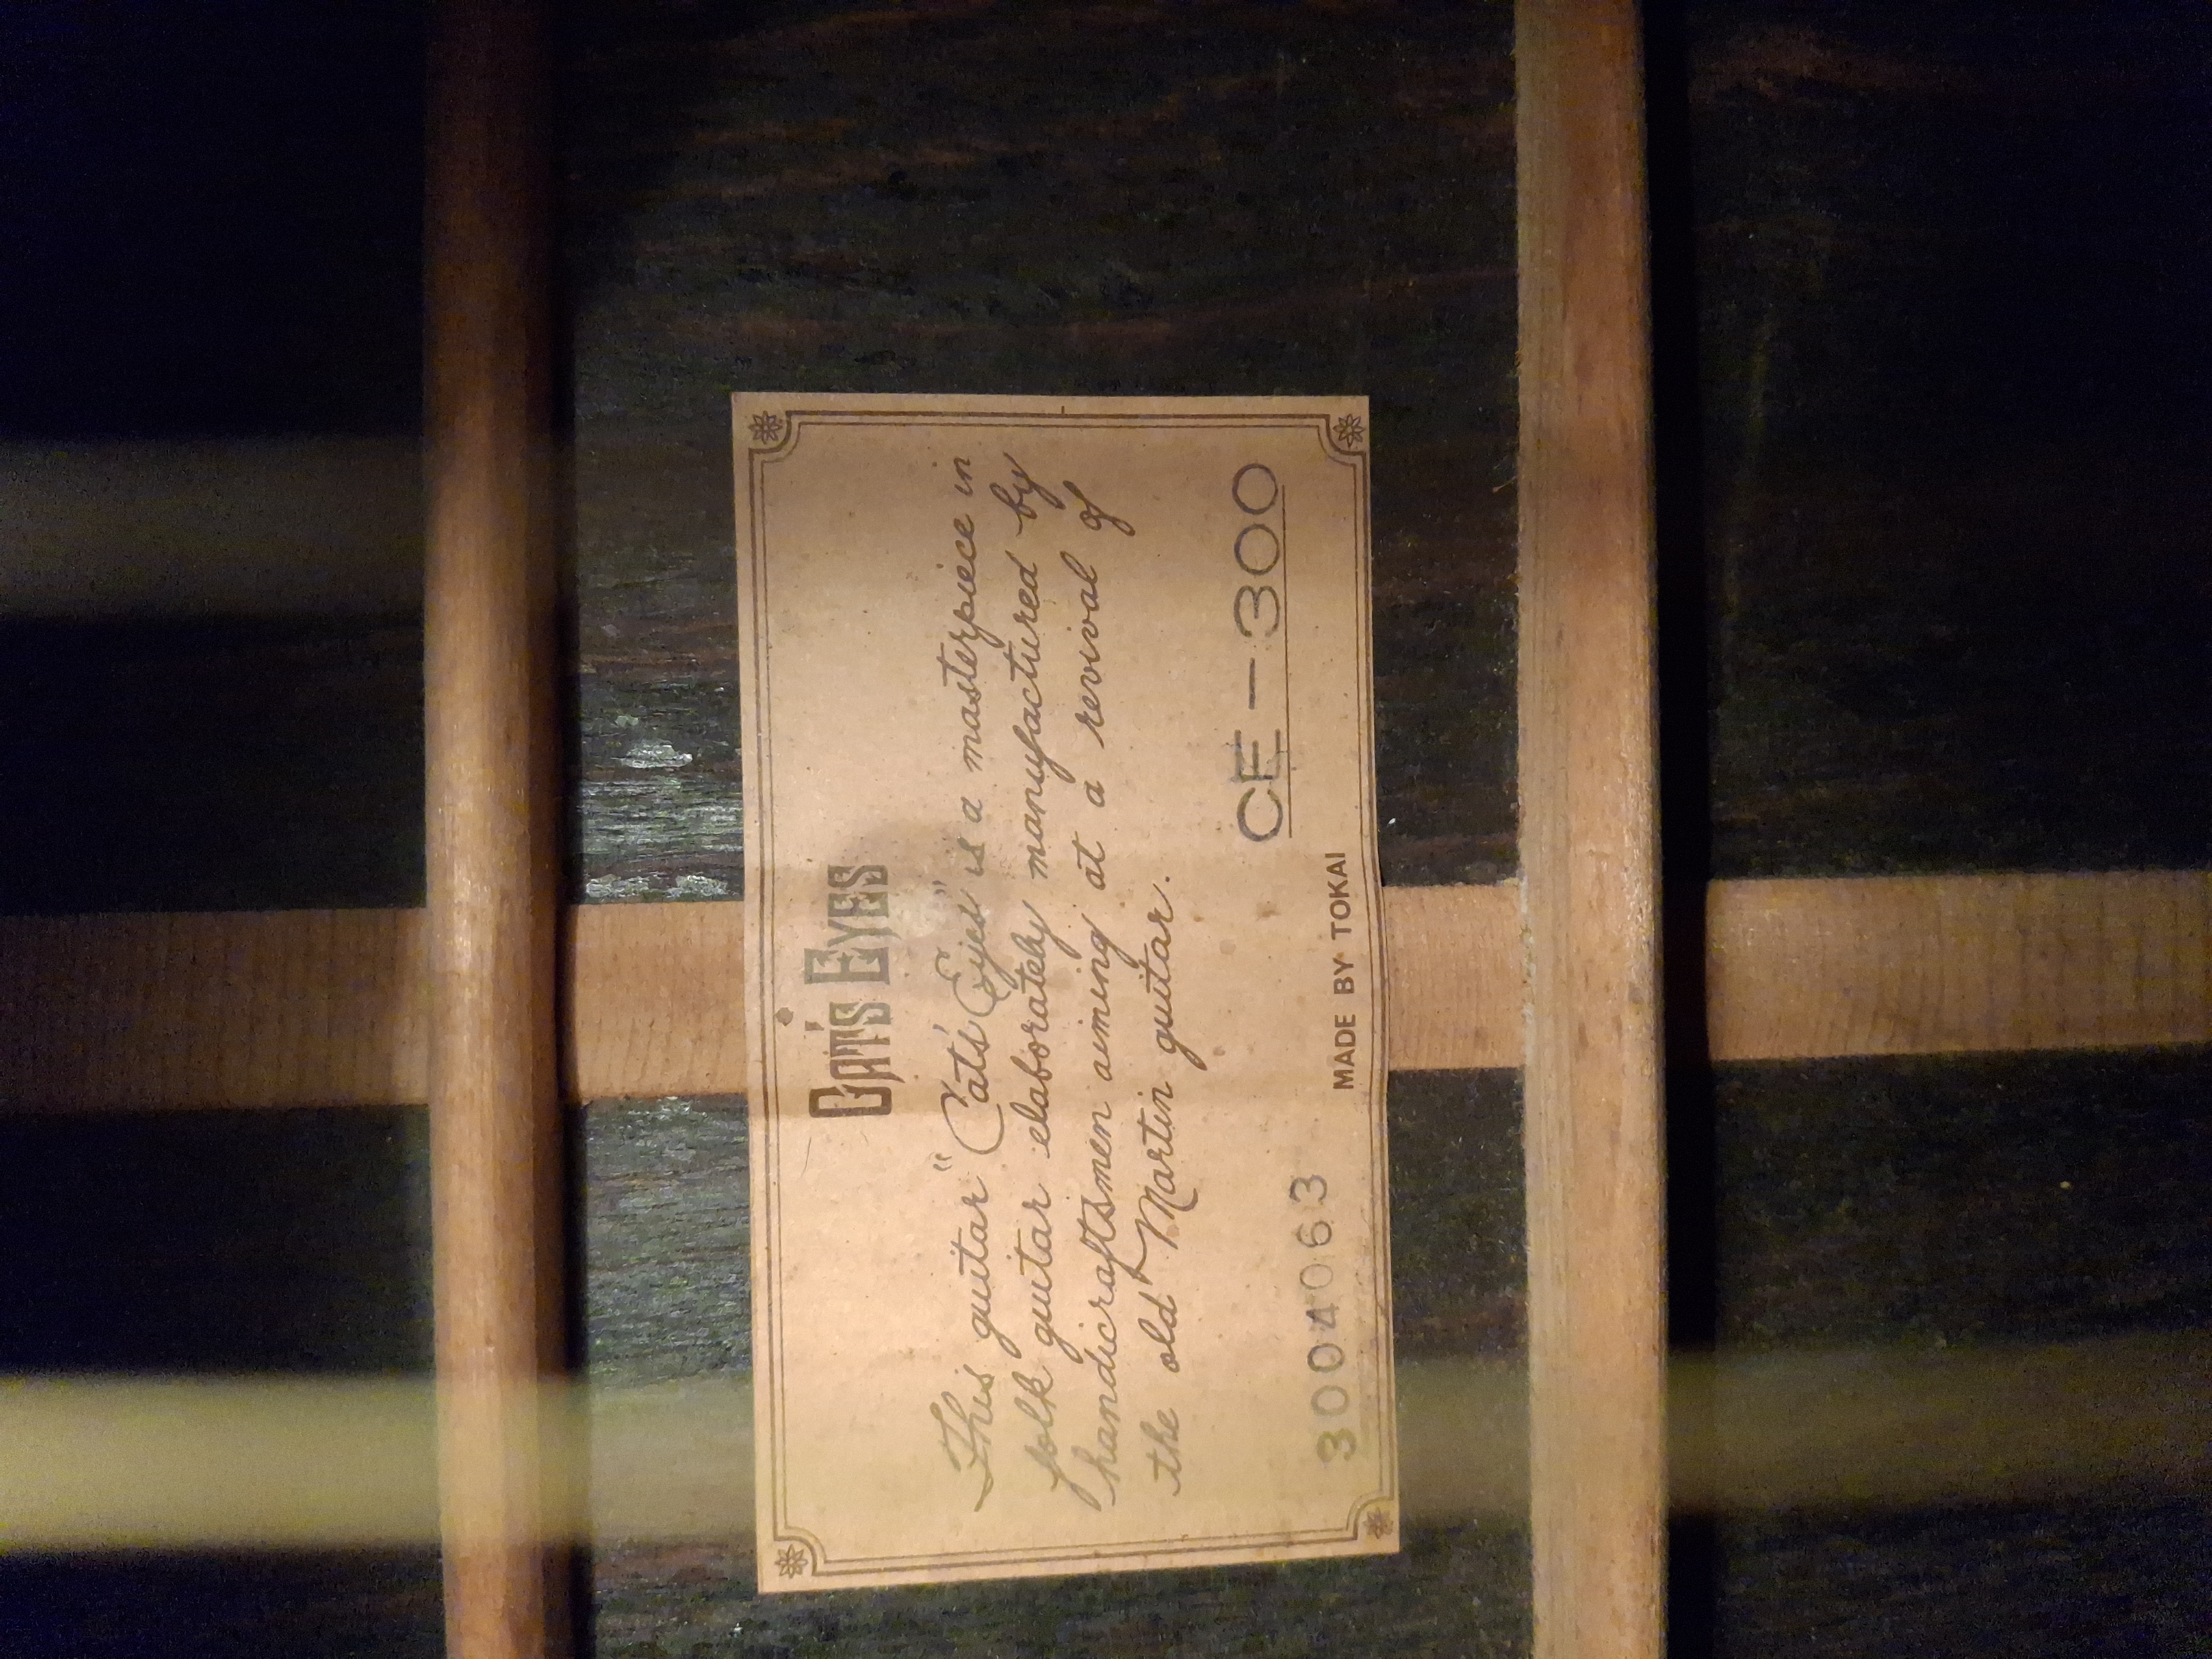 CAT'S EYES
This guitar "Cat's Eyes" is a masterpiece in
folk guitar elaborately manufactured by
handicraftsmen aiming at a revival of
the old Martin guitar.
CE-300
3004063
MADE BY TOKAI